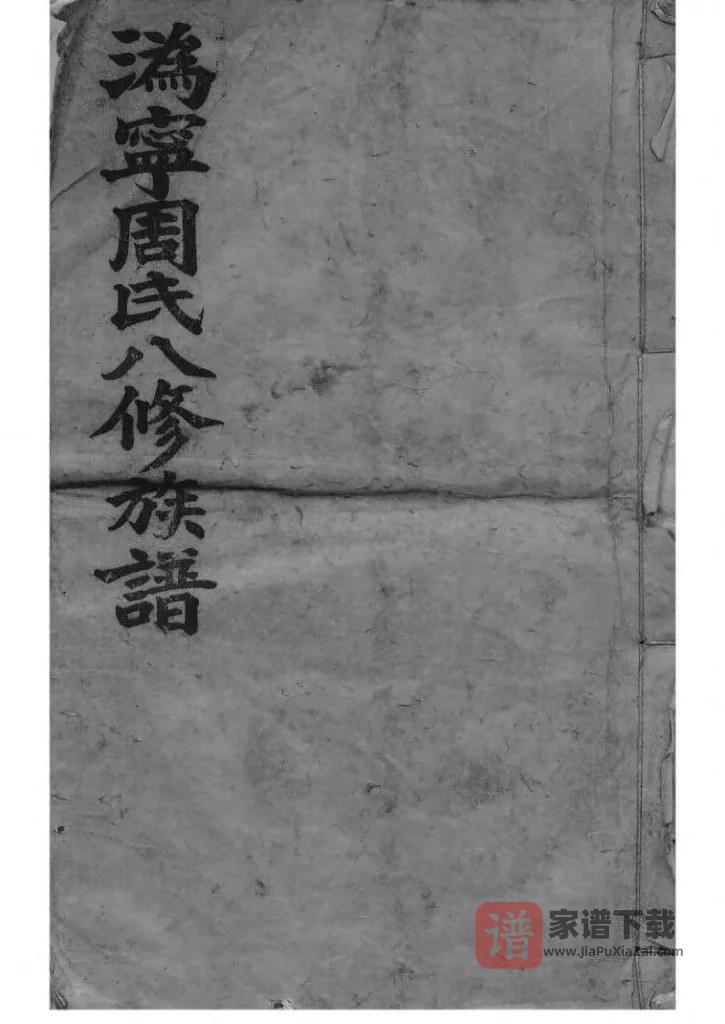 潙寧周氏八修族譜
谱
家谱下载
www.JiaPuXiaZai.com